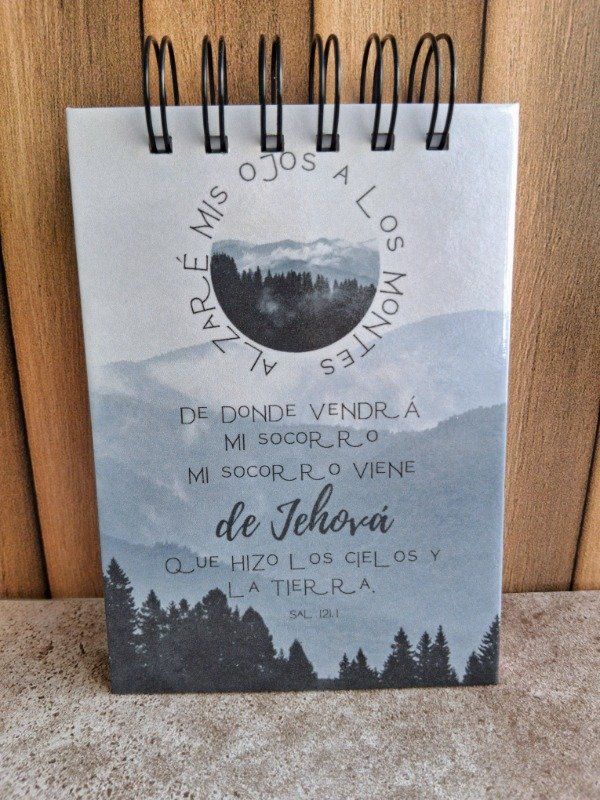 ALZARÉ MIS OJOS A LOS MONTES
DE DONDE VENDRÁ
MI SOCORRO
MI SOCORRO VIENE
de Jehová
QUE HIZO LOS CIELOS Y
LA TIERRA.
SAL. 121.1